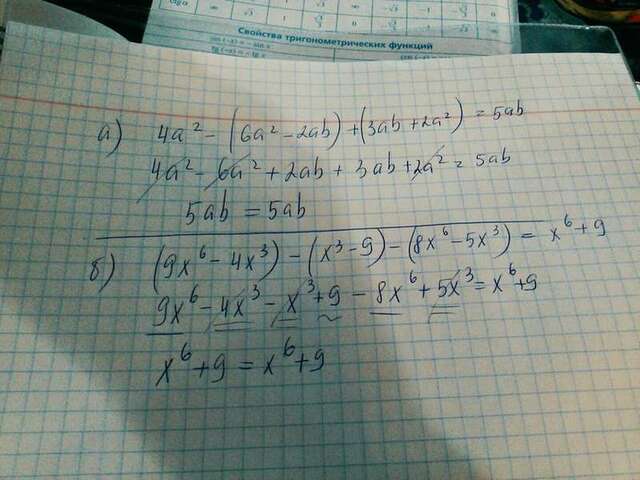 Свойства тригонометрических функций
а) 4a² - (6a² - 2ab) + (3ab + 2a²) = 5ab
4a² - 6a² + 2ab + 3ab + 2a² = 5ab
5ab = 5ab
б) (9x⁶ - 4x³) - (x³ - 9) - (8x⁶ - 5x³) = x⁶ + 9
9x⁶ - 4x³ - x³ + 9 - 8x⁶ + 5x³ = x⁶ + 9
x⁶ + 9 = x⁶ + 9